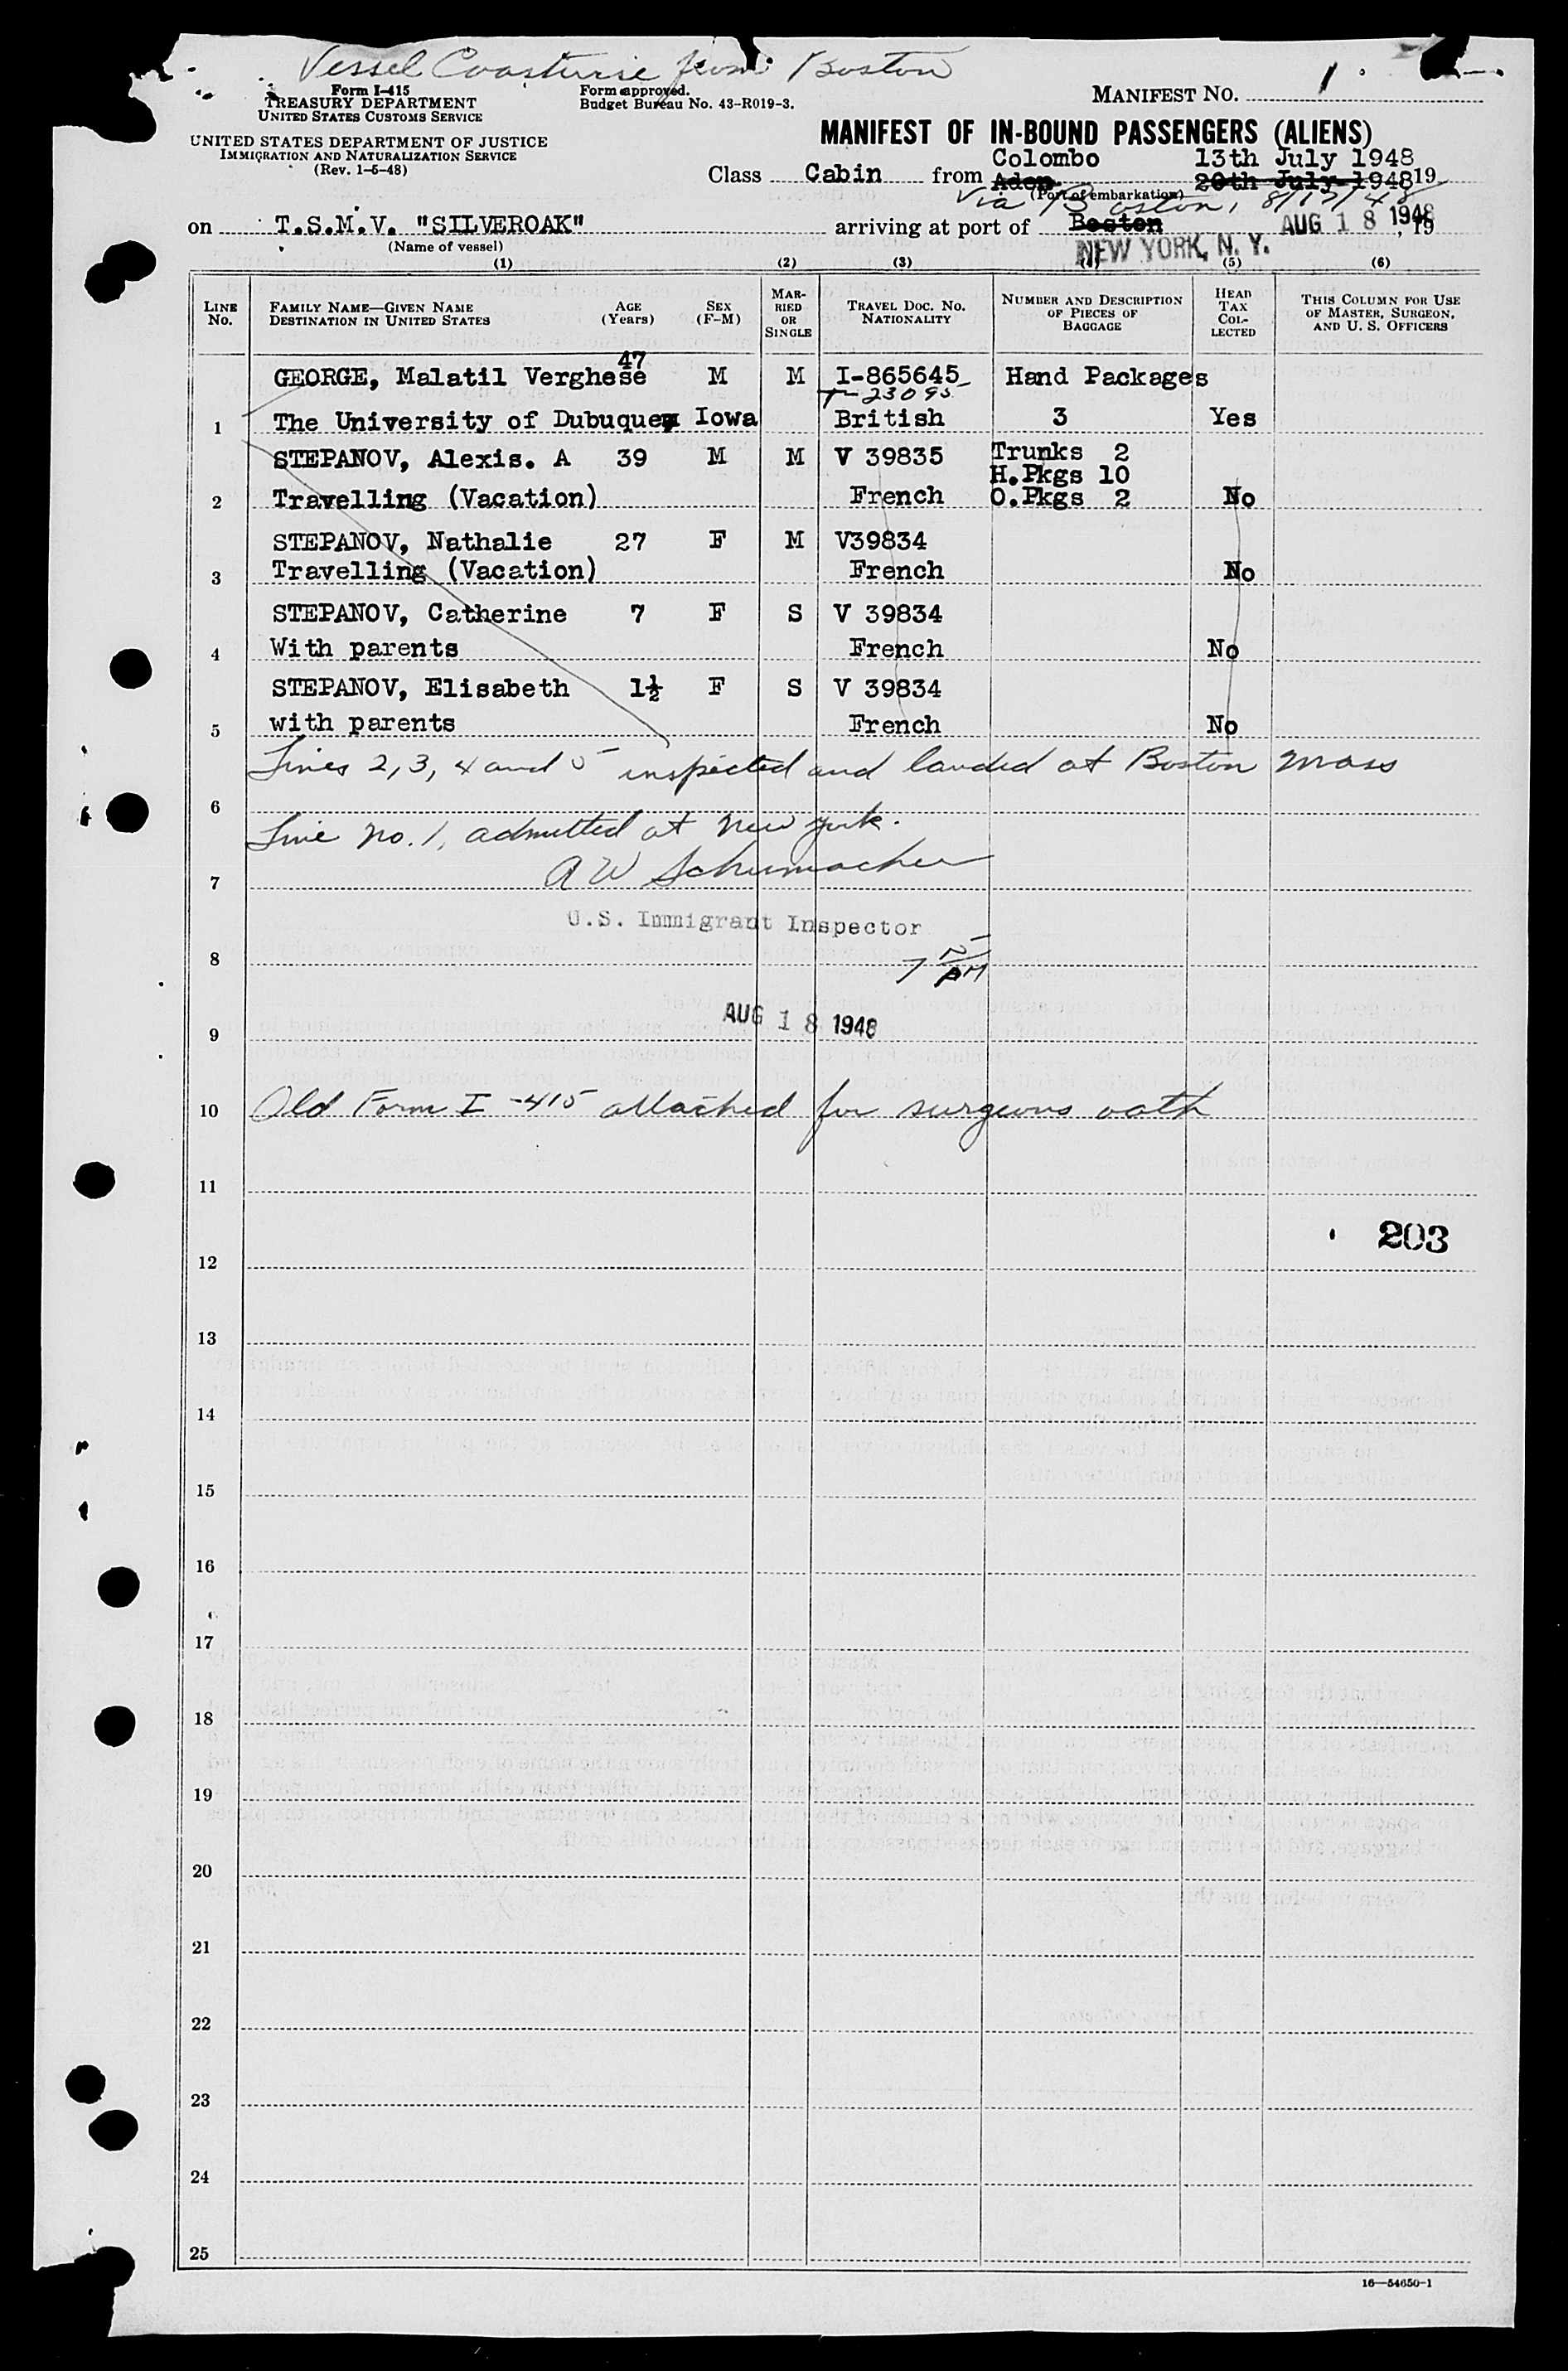 Vessel Coastwise from Boston
Form I-415
TREASURY DEPARTMENT
UNITED STATES CUSTOMS SERVICE
Form approved.
Budget Bureau No. 43-R019-3.
MANIFEST NO. 1
UNITED STATES DEPARTMENT OF JUSTICE
IMMIGRATION AND NATURALIZATION SERVICE
(Rev. 1-5-48)
MANIFEST OF IN-BOUND PASSENGERS (ALIENS)
Colombo 13th July 1948
Class Cabin from Aden 20th July 1948 19
(Port of embarkation)
Via Boston, 8/17/48
on T.S.M.V. "SILVEROAK" arriving at port of Boston AUG 18 1948, 19
(Name of vessel)
NEW YORK, N. Y.
(1) (2) (3) (5) (6)
LINE No.
FAMILY NAME—GIVEN NAME
DESTINATION IN UNITED STATES
AGE (Years)
SEX (F-M)
MARRIED OR SINGLE
TRAVEL DOC. NO.
NATIONALITY
NUMBER AND DESCRIPTION OF PIECES OF BAGGAGE
HEAD TAX COLLECTED
THIS COLUMN FOR USE OF MASTER, SURGEON, AND U. S. OFFICERS
47
GEORGE, Malatil Verghese M M I-865645 Hand Packages
T-23095
1 The University of Dubuque Iowa British 3 Yes
STEPANOV, Alexis. A 39 M M V 39835 Trunks 2
H.Pkgs 10
2 Travelling (Vacation) French O.Pkgs 2 No
STEPANOV, Nathalie 27 F M V39834
3 Travelling (Vacation) French No
STEPANOV, Catherine 7 F S V 39834
4 With parents French No
STEPANOV, Elisabeth 1½ F S V 39834
5 with parents French No
Lines 2, 3, 4 and 5 inspected and landed at Boston Mass
6
Line No. 1, admitted at New York.
A W Schumacher
7
U.S. Immigrant Inspector
8
7 PM
AUG 18 1948
9
10 Old Form I-415 attached for surgeons oath
11
203
12
13
14
15
16
17
18
19
20
21
22
23
24
25
16—54650-1